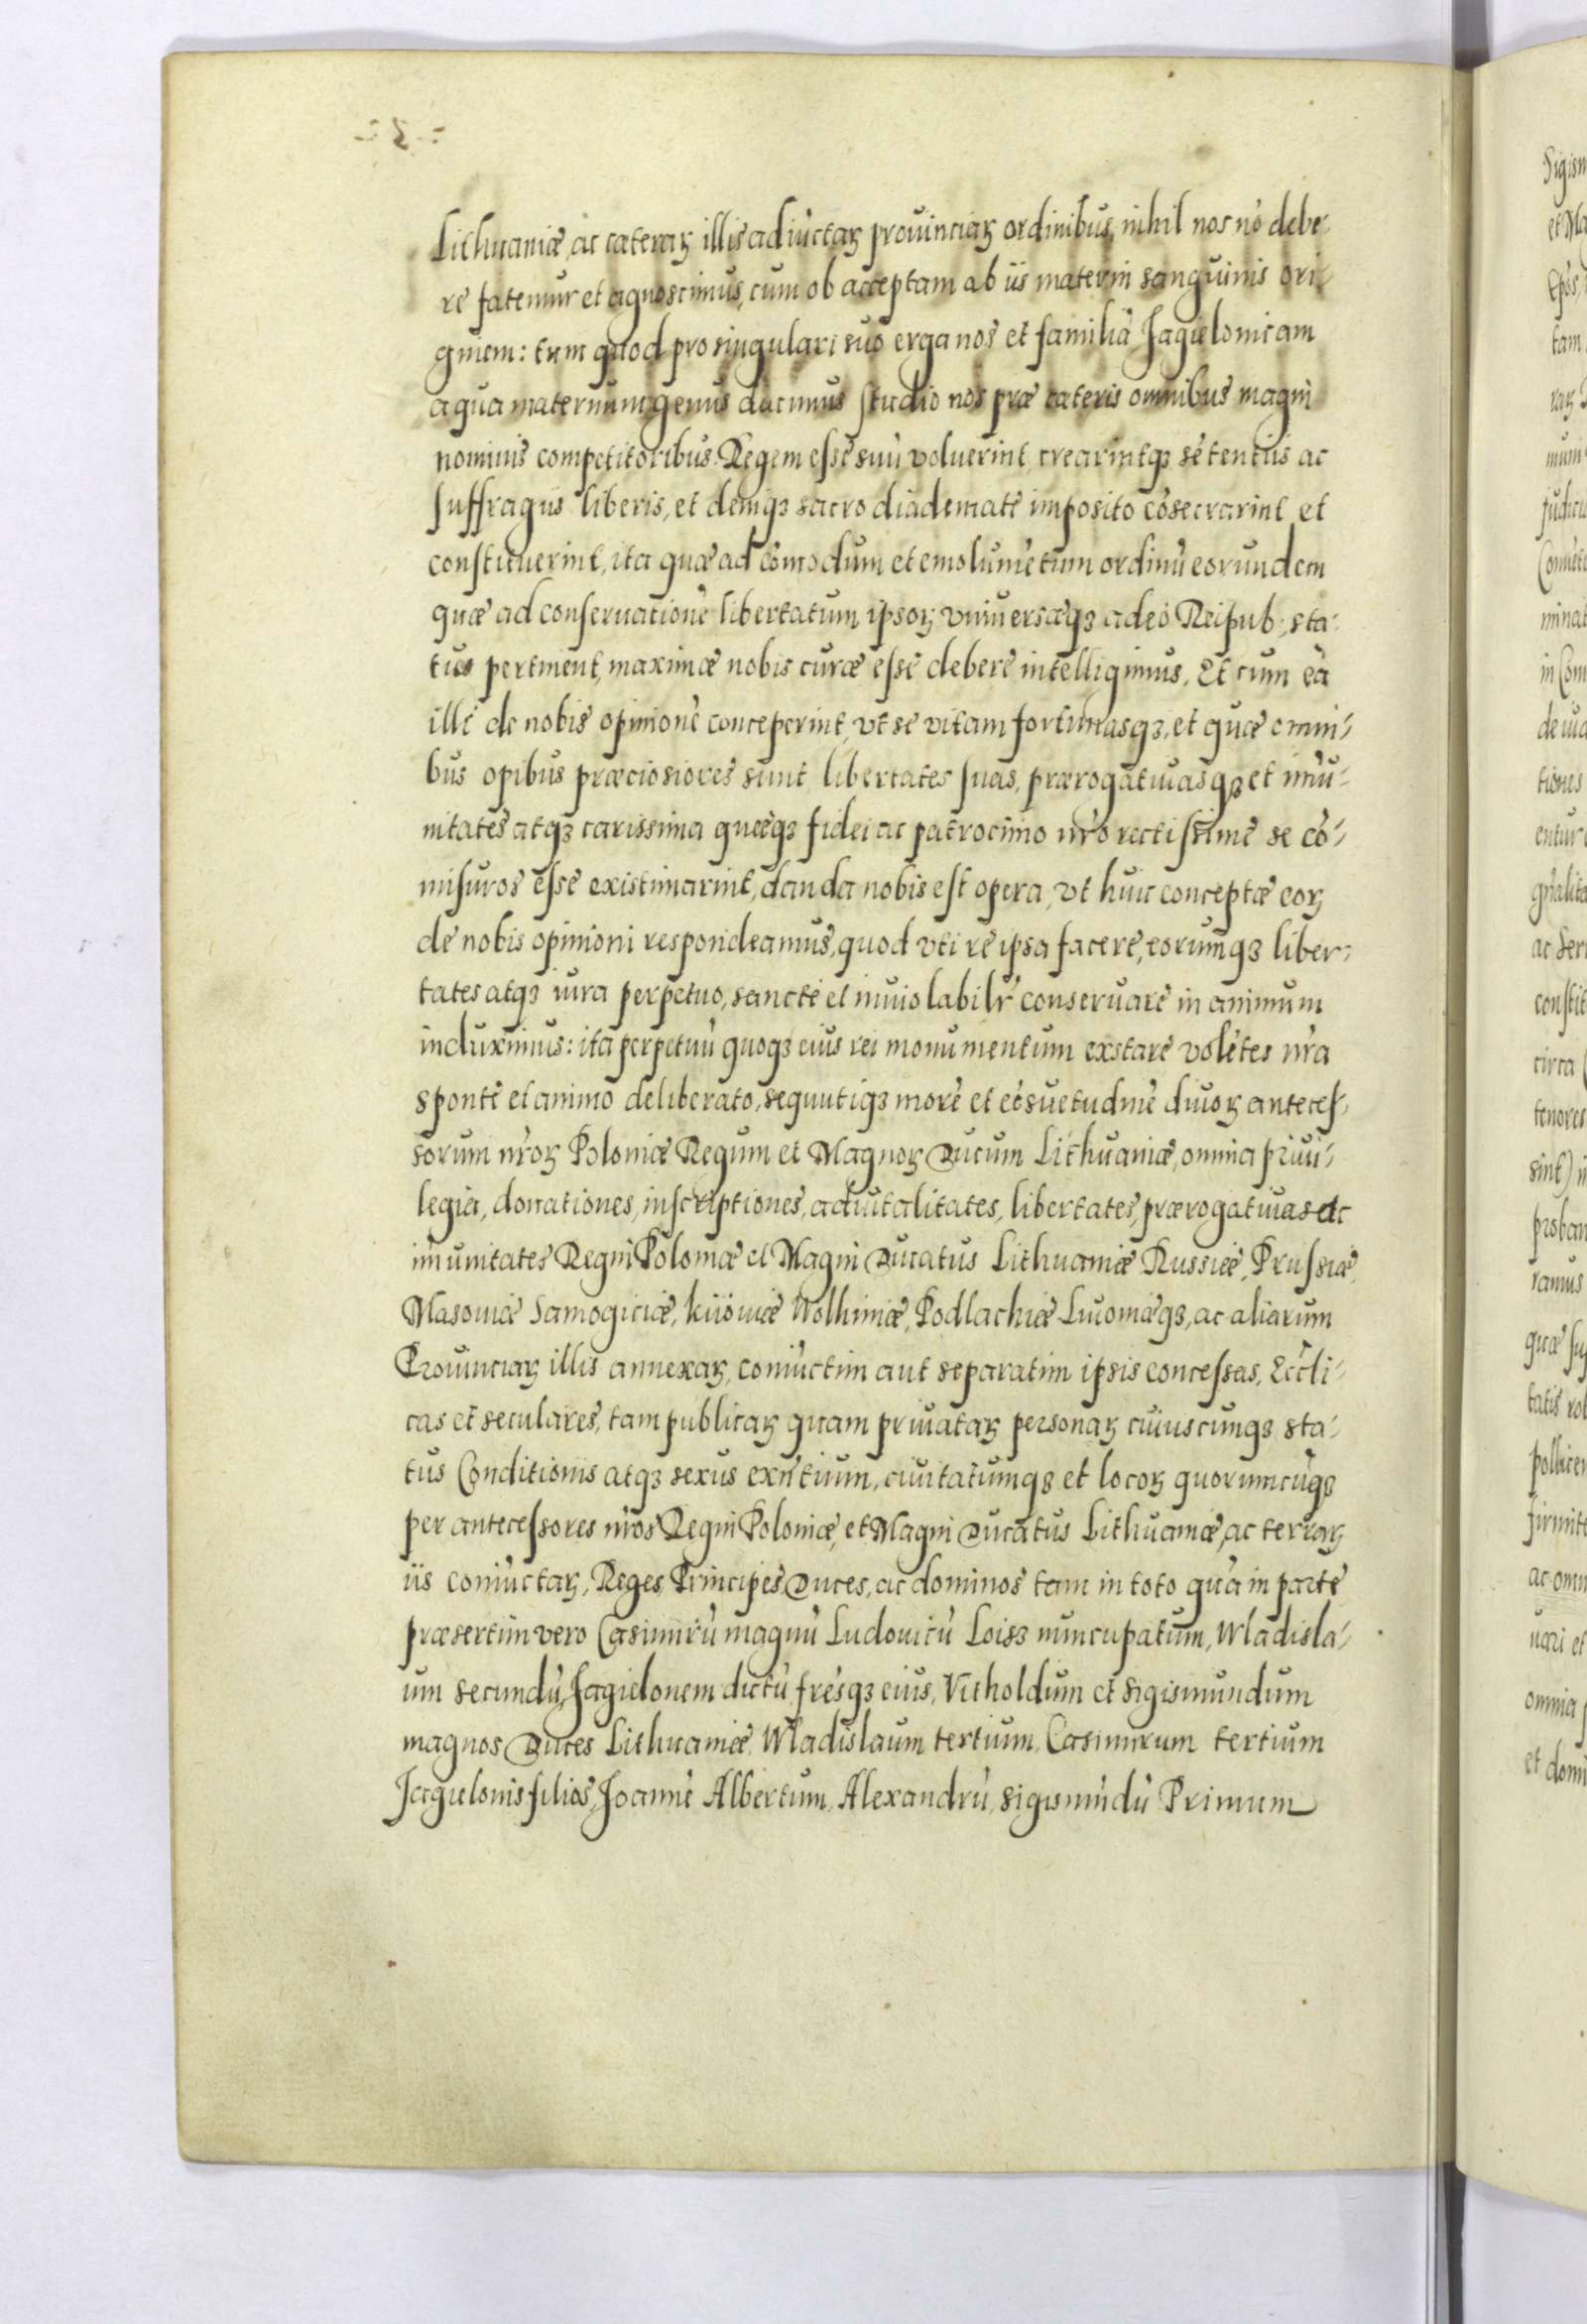 Lithuaniæ, ac cæterarꝫ illis adiu̇ctarꝫ prouinciarꝫ ordinibus, nihil nos nō debe-
re fatemur et agnoscimus, cum ob acceptam ab iis materni sanguinis ori-
ginem: tum quod pro singulari suo erga nos et familiā Jagielonicam
a qua maternum genus ducimus studio nos præ cæteris omnibus magni
nominis competitoribus. Regem esse suū voluerint, crearintqꝫ sētentiis ac
suffragiis liberis, et deniqꝫ sacro diademate imposito cōsecrarint et
constituerint, ita quæ ad cōmodum et emolumētum ordinū eorundem
quæ ad conseruationē libertatum ipsorꝫ vniuersæqꝫ adeo Reipub: sta-
tus pertinent, maximæ nobis curæ esse debere intelligimus. Et cum eā
illi de nobis opinionē conceperint, vt se vitam fortunasqꝫ, et quæ omni-
bus opibus præciosiores sunt libertates suas, prærogatiuasqꝫ et imu-
nitates atqꝫ carissima quæqꝫ fidei ac patrocinio nr̄o rectissime se cō-
misuros esse existimarint, danda nobis est opera, vt huic conceptæ eorꝫ
de nobis opinioni respondeamus, quod vti re ipsa facere, eorumqꝫ liber-
tates atqꝫ iura perpetuo, sancte et inuiolabilr̄ conseruare in animum
induximus: ita perpetuū quoqꝫ eius rei monumentum exstare volētes nr̄a
sponte et animo deliberato, sequutiqꝫ more et cōsuetudine diuorꝫ anteces-
sorum nr̄orꝫ Poloniæ Regum et Magnorꝫ Ducum Lithuaniæ, omnia priui-
legia, donationes, inscriptiones, aduitalitates, libertates, prærogatiuas ac
imunitates Regni Poloniæ et Magni Ducatus Lithuaniæ Russiæ, Prussiæ,
Masouiæ Samogitiæ, Kiiouiæ Wolhiniæ, Podlachiæ Liuoniæqꝫ, ac aliarum
Prouinciarꝫ illis annexarꝫ, coniūctim aut separatim ipsis concessas, Eccl̄i-
cas et seculares, tam publicarꝫ quam priuatarꝫ personarꝫ cuiuscunqꝫ sta-
tus Conditionis atqꝫ sexus exn̄tium, ciuitatumqꝫ et locorꝫ quorumcūqꝫ
per antecessores nr̄os Regni Poloniæ, et Magni Ducatus Lithuaniæ, ac terrarꝫ
iis coniūctarꝫ, Reges Principes Duces, ac dominos tam in toto quā in parte
præsertim vero Casimirū magnū Ludouicū Loisꝫ nuncupatum, Wladisla-
um secundū Jagielonem dictū fr̄esqꝫ eius, Vitholdum et Sigismundum
magnos Duces Lithuaniæ Wladislaum tertium, Casimirum tertium
Jagielonis filios, Joannē Albertum, Alexandrū, Sigismūdū Primum